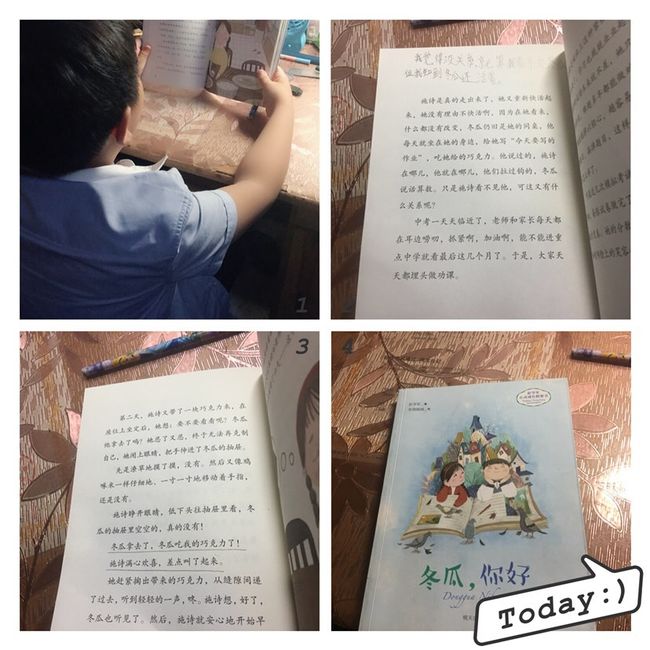 1
我觉得没关系,
但我知道冬瓜还活着。
施诗是真的走出来了,她又重新快活起
来,她没有理由不快活啊,因为在她看来,
什么都没有改变,冬瓜仍旧是她的同桌,他
每天就坐在她的身边,给她写“今天要写的
作业”,吃她给的巧克力。他说过的,施诗
在哪儿,他就在哪儿,他们拉过钩的,冬瓜
说话算数。只是施诗看不见他,可这又有什
么关系呢?
中考一天天临近了,老师和家长每天都
在耳边唠叨,抓紧啊,加油啊,能不能进重
点中学就看最后这几个月了。于是,大家天
天都埋头做功课。
3
第二天,施诗又带了一块巧克力来,在
座位上坐定后,她想:要不要看看呢?冬瓜
他拿去了吗?她忍了又忍,终于无法再克制
自己,她闭上眼睛,把手伸进了冬瓜的抽屉。
先是潦草地摸了摸,没有。然后又像鸡
啄米一样仔细地、一寸一寸地移动着手指,
还是没有。
施诗睁开眼睛,低下头往抽屉里看,冬
瓜的抽屉里空空的,真的没有!
冬瓜拿去了,冬瓜吃我的巧克力了!
施诗满心欢喜,差点叫了起来。
她赶紧掏出带来的巧克力,从缝隙间递
了过去,听到轻轻的一声,咚。施诗想,好了,
冬瓜也听见了。然后,施诗就安心地开始早
4
冬瓜,你好
Donggua
Today:)